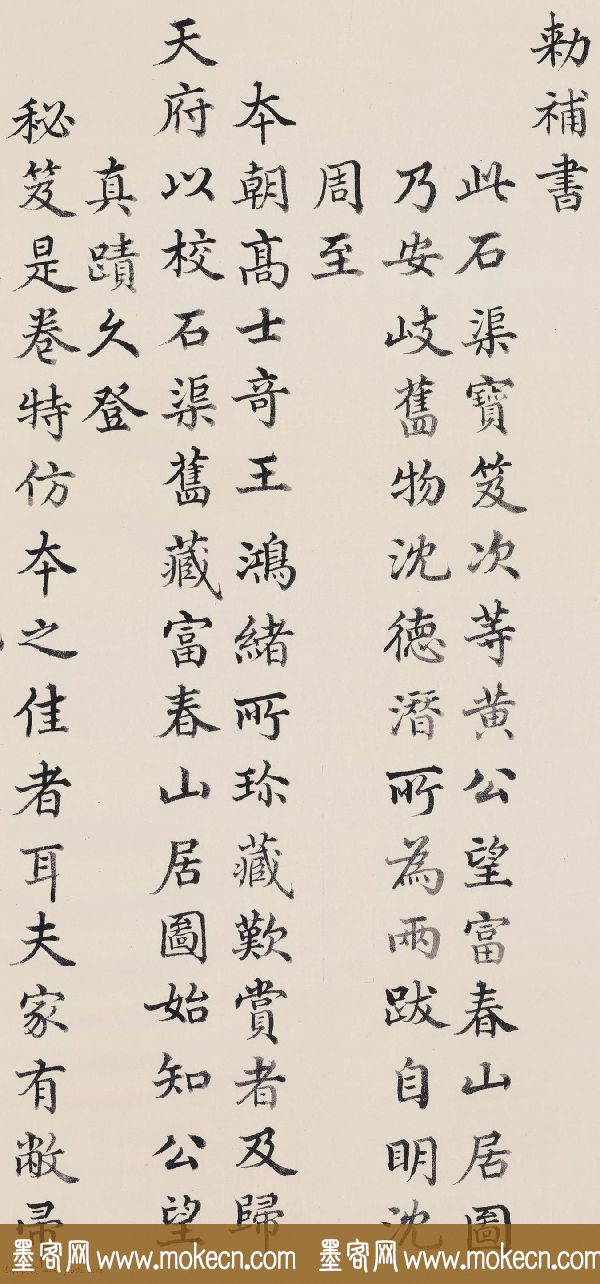 勅補書
此石渠寶笈次等黄公望富春山居圖
乃安岐舊物沈德潛所為兩跋自明沈
周至
本朝高士奇王鴻緒所珎藏歎賞者及歸
天府以校石渠舊藏富春山居圖始知公望
真蹟久登
秘笈是卷特仿本之佳者耳夫家有敝帚
墨客网 www.mokecn.com 墨客网 www.mokecn.com